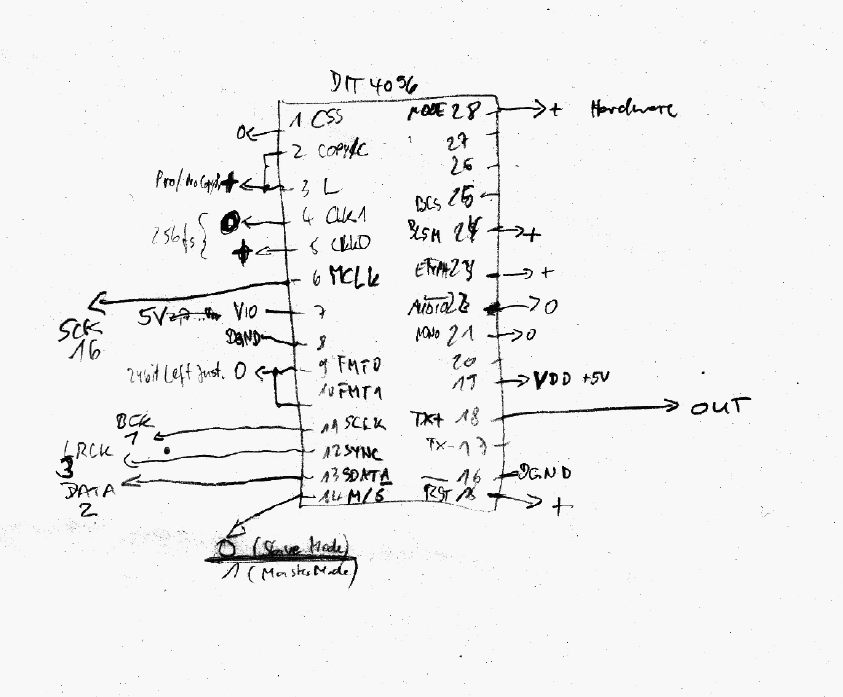 DIT 4096
1 CSS
MODE 28 + Hardware
0
2 COPY/C
27
26
Pro/No Copy + 3 L
BLS 25
256fs { 0 4 CLK1
BLSM 24 +
+ 5 CLK0
6 MCLK
EMPH 23 +
SCK
16
5V VIO 7
AUDIO 22 0
DGND 8
MONO 21 0
24bit Left Just. 0 9 FMT0
20
10 FMT1
19 VDD +5V
BCK
1
11 SCLK
TX+ 18 OUT
LRCK
3
12 SYNC
TX- 17
DATA
2
13 SDATA
16 DGND
14 M/S
RST 15 +
0 (Slave Mode)
1 (Master Mode)